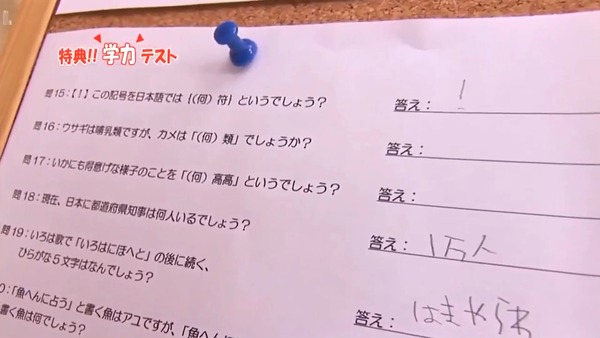 特典!! 学力 テスト
問15:【！】この記号を日本語では｛(何) 符｝というでしょう？ 答え： !
問16：ウサギは哺乳類ですが、カメは「(何) 類」でしょうか？ 答え：
問17：いかにも得意げな様子のことを「(何) 高高」というでしょう？ 答え：
問18：現在、日本に都道府県知事は何人いるでしょう？ 答え： 1万人
19：いろは歌で「いろはにほへと」の後に続く、 答え：
ひらがな5文字はなんでしょう？
0：「魚へんに占う」と書く魚はアユですが、「魚へんに
書く魚は何でしょう？